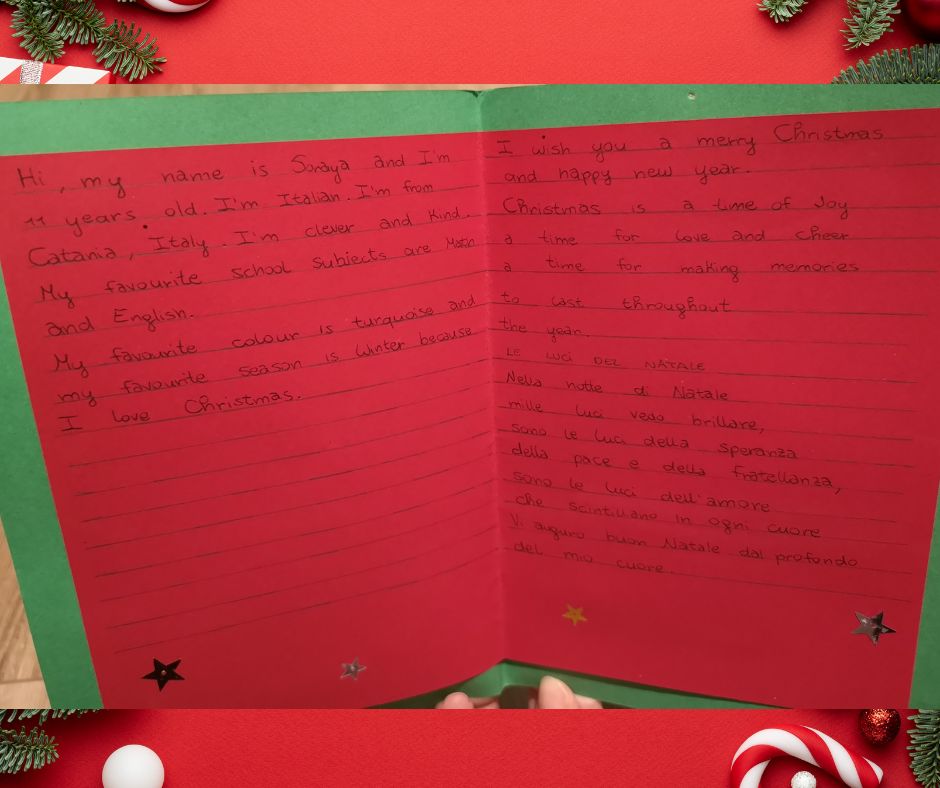 Hi, my name is Soraya and I'm
11 years old. I'm Italian. I'm from
Catania, Italy. I'm clever and kind.
My favourite school subiects are Math
and English.
My favourite colour is turquoise and
my favourite season is winter because
I love Christmas.
I wish you a merry Christmas
and happy new year.
Christmas is a time of Joy
a time for love and cheer
a time for making memories
to last throughout
the year.
LE LUCI DEL NATALE
Nella notte di Natale
mille luci vedo brillare,
sono le luci della speranza
della pace e della fratellanza,
sono le luci dell'amore
che scintillano in ogni cuore
Vi auguro buon Natale dal profondo
del mio cuore.